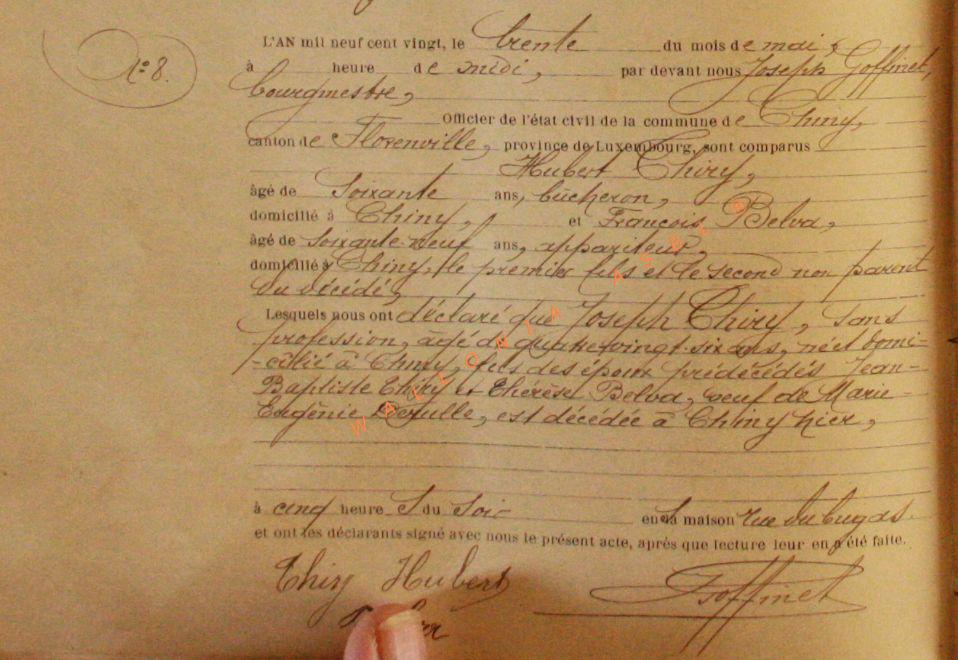 N° 8.
L'AN mil neuf cent vingt, le trente du mois de mai,
à heure de midi, par devant nous Joseph Goffinet,
bourgmestre,
Officier de l'état civil de la commune de Chiny,
canton de Florenville, province de Luxembourg, sont comparus
Hubert Thiry,
âgé de soixante ans, bûcheron,
domicilié à Chiny, et François Belva,
âgé de soixante-neuf ans, appariteur,
domicilié à Chiny, le premier fils et le second non parent
du décédé,
Lesquels nous ont déclaré que Joseph Thiry, sans
profession, âgé de quatre-vingt-six ans, né et domi-
-cilié à Chiny, fils des époux prédécédés Jean-
Baptiste Thiry et Thérèse Belva, veuf de Marie-
Eugénie, est décédée à Chiny hier,
à cinq heures du soir en sa maison rue du
et ont les déclarants signé avec nous le présent acte, après que lecture leur en a été faite.
Thiry Hubert
Goffinet